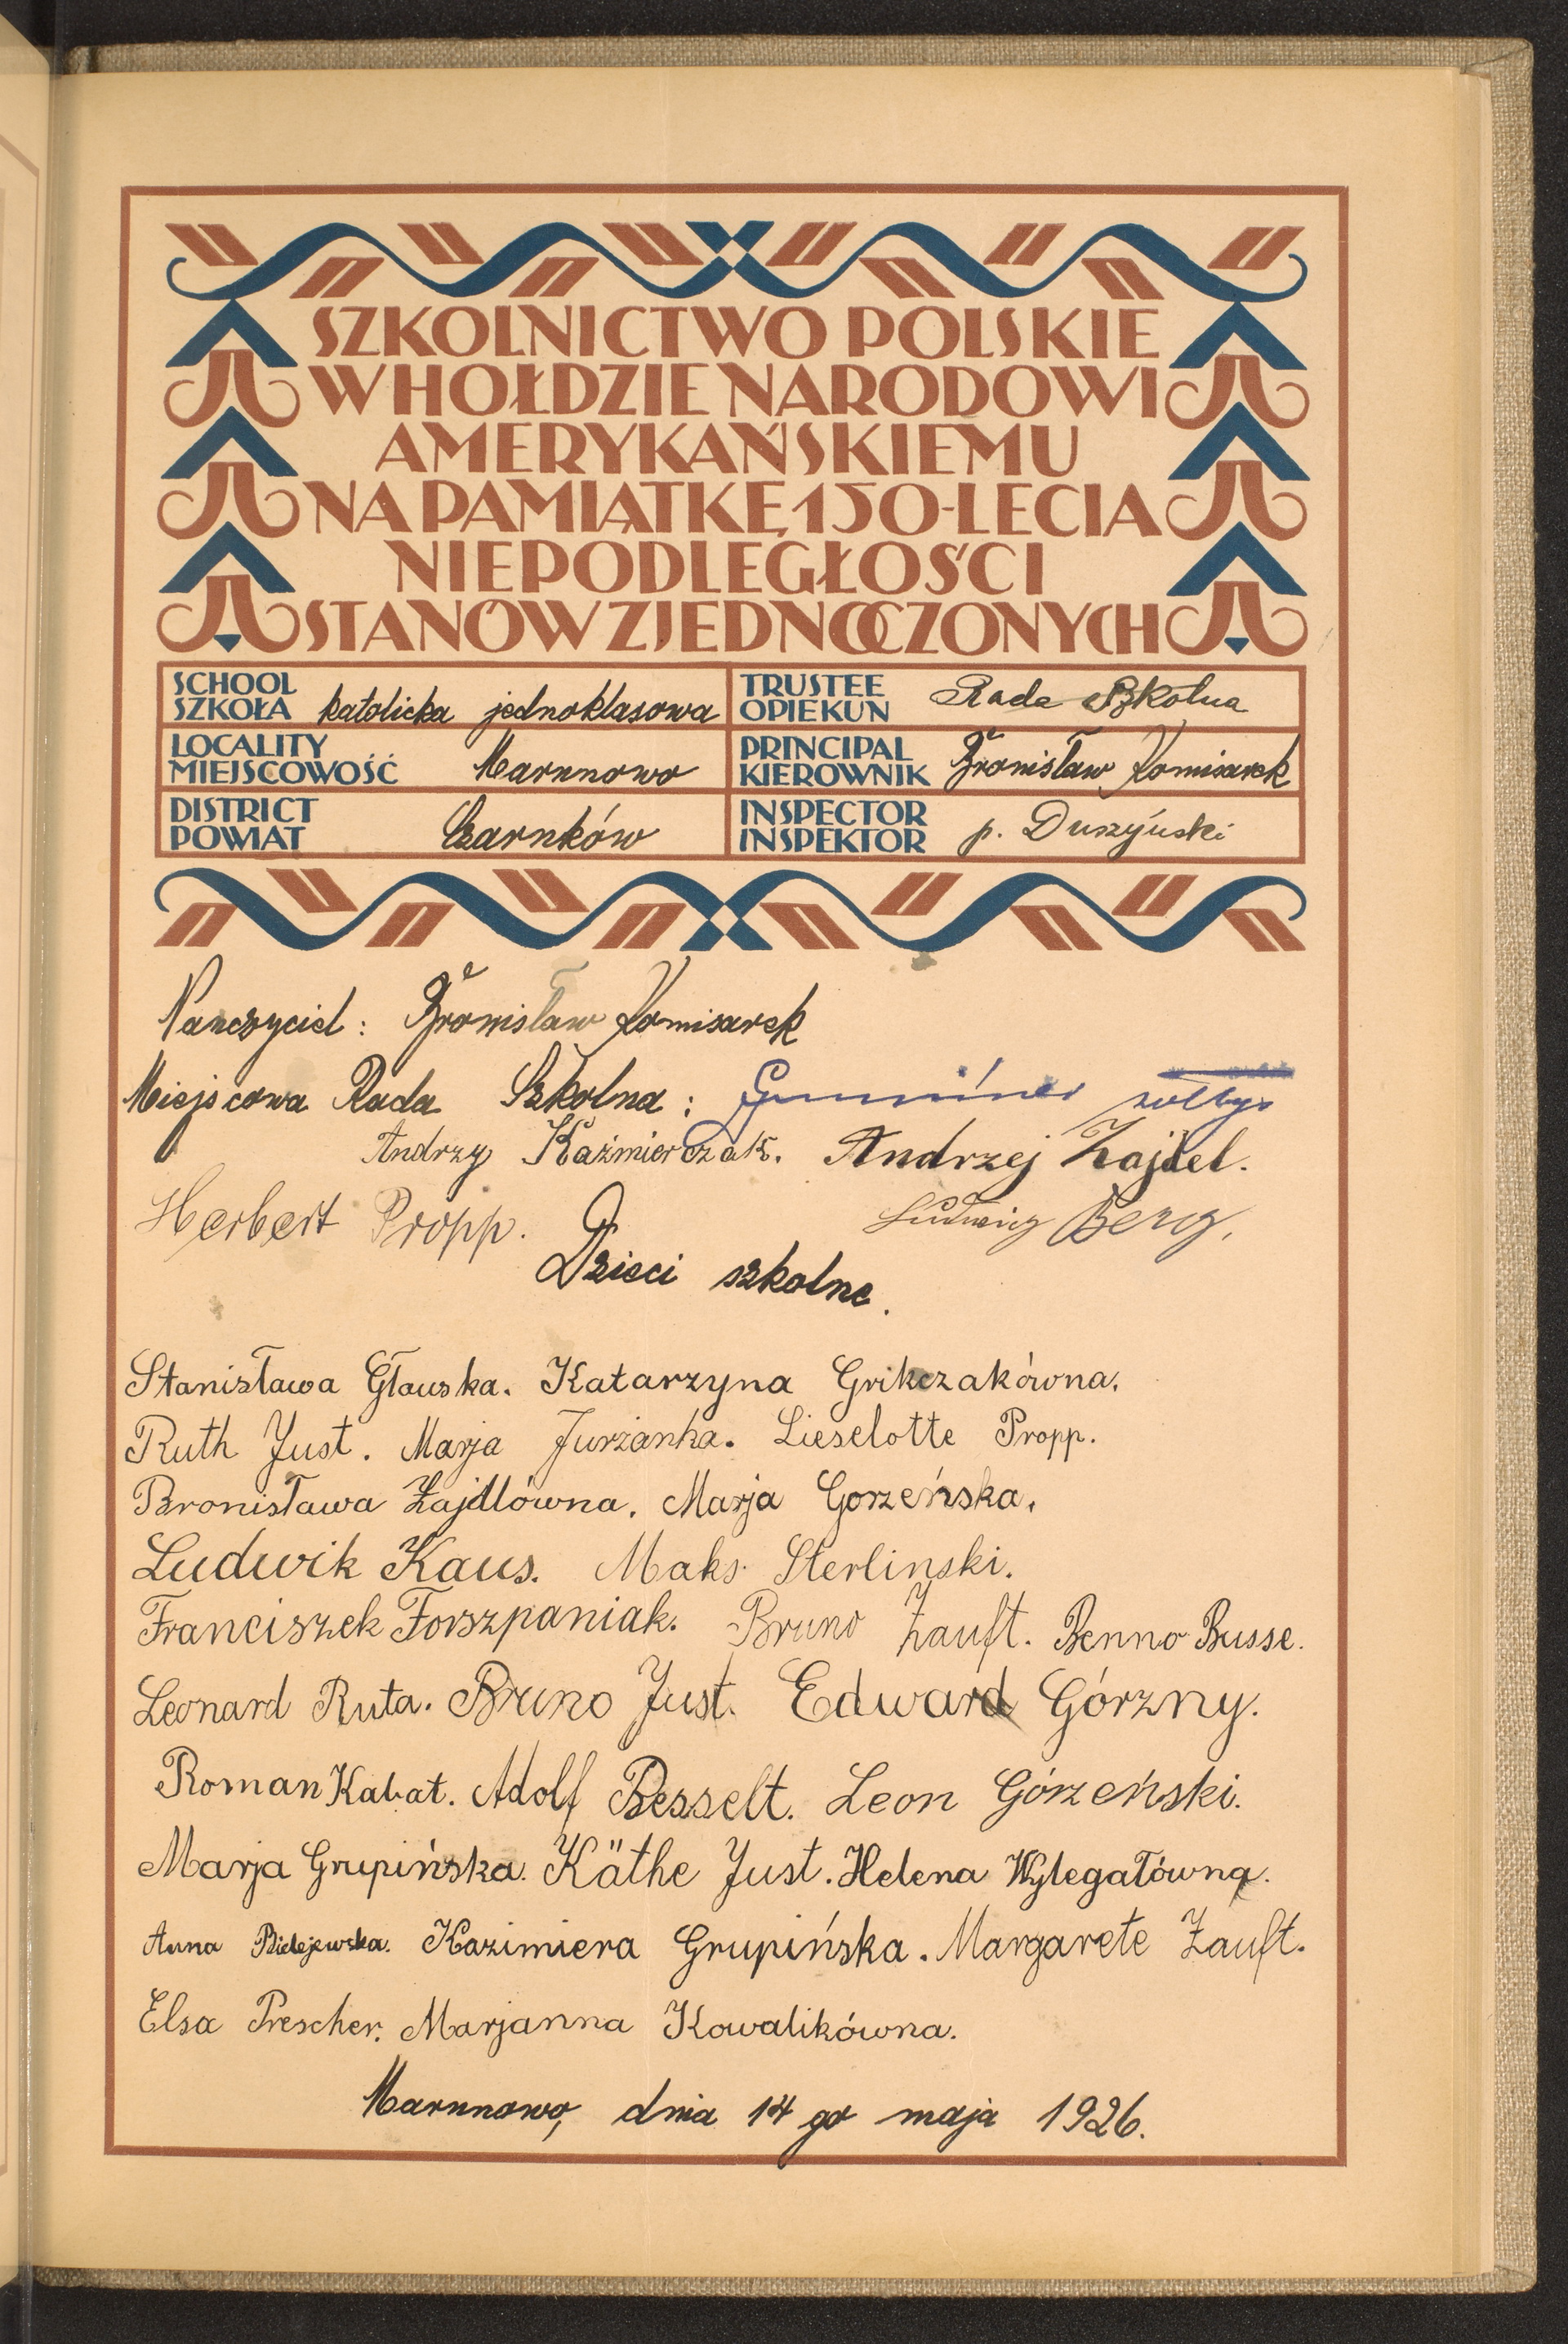 SZKOLNICTWO POLSKIE
W HOŁDZIE NARODOWI
AMERYKAŃSKIEMU
NA PAMIĄTKĘ 150-LECIA
NIEPODLEGŁOŚCI
STANÓW ZJEDNOCZONYCH
SCHOOL
SZKOŁA katolicka jednoklasowa
TRUSTEE
OPIEKUN Rada Szkolna
LOCALITY
MIEJSCOWOŚĆ Marunowo
PRINCIPAL
KIEROWNIK Bronisław Komisarek
DISTRICT
POWIAT Czarnków
INSPECTOR
INSPEKTOR p. Duszyński
Nauczyciel: Bronisław Komisarek
Miejscowa Rada Szkolna: sołtys
Andrzy Kaźmierczak. Andrzej Zajdel.
Herbert Propp. Ludwig Berg.
Dzieci szkolne.
Stanisława Głauska. Katarzyna Grikczakówna.
Ruth Just. Marja Jurżanka. Lieselotte Propp.
Bronisława Zajdlówna. Marja Gorzeńska.
Ludwik Kaus. Maks Sterlinski.
Franciszek Forszpaniak. Bruno Zauft. Benno Busse.
Leonard Ruta. Bruno Just. Edward Górzny.
Roman Kabat. Adolf Besselt. Leon Górzeński.
Marja Grupińska. Käthe Just. Helena Wylegałówna.
Anna Bielejewska. Kazimiera Grupińska. Margarete Zauft.
Elsa Prescher. Marjanna Kowalikówna.
Marunowo, dnia 14 go maja 1926.